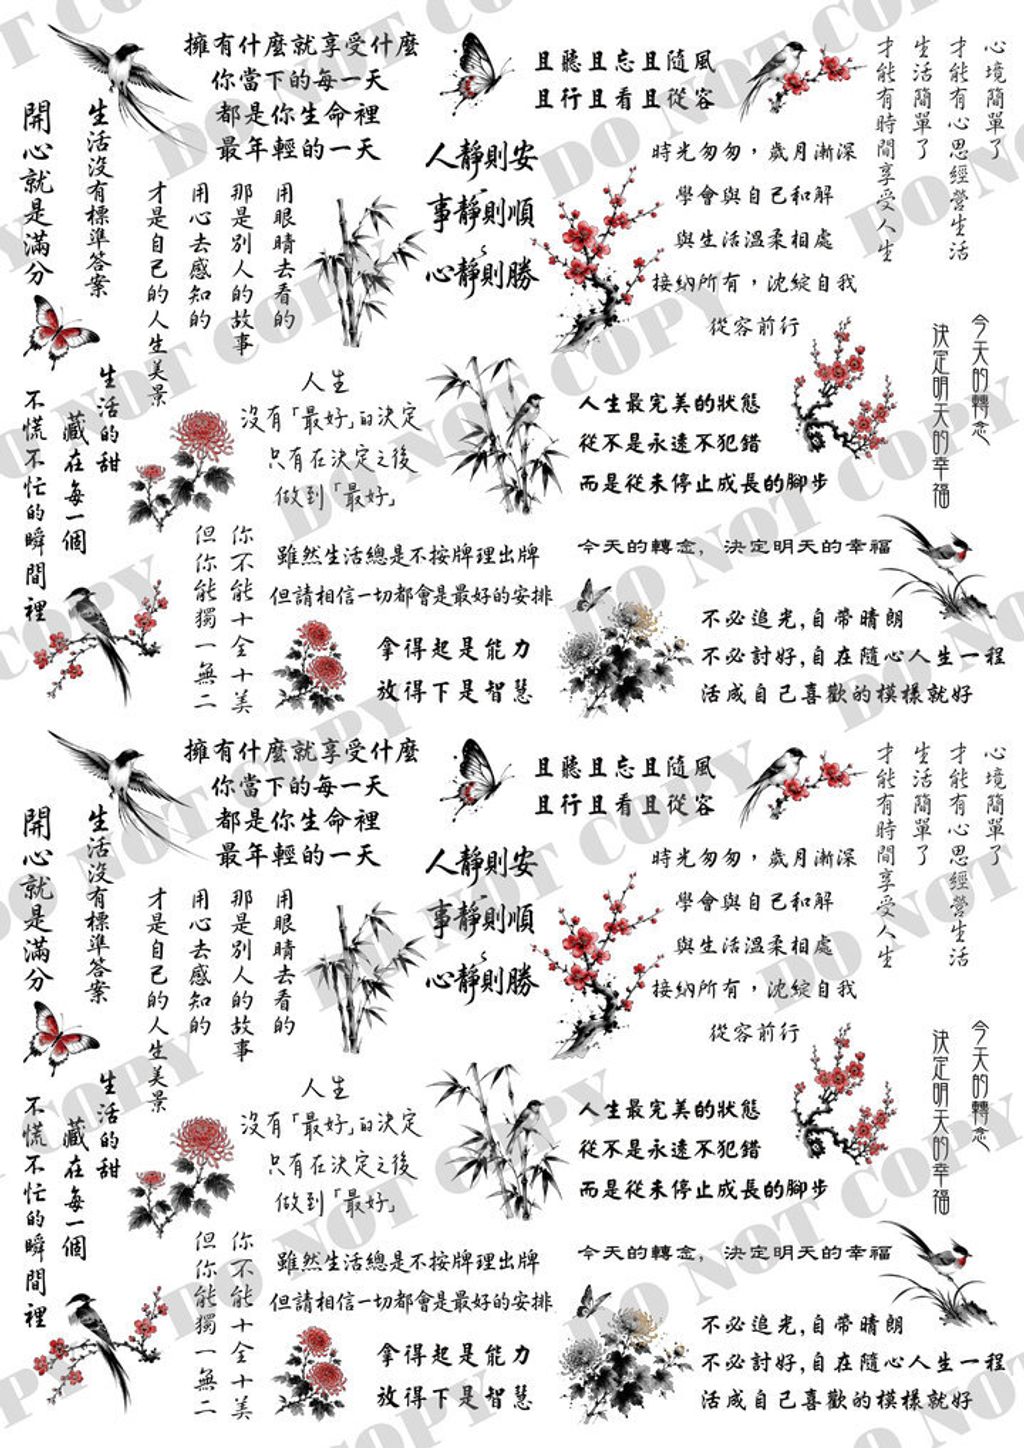 擁有什麼就享受什麼
你當下的每一天
都是你生命裡
最年輕的一天
且聽且忘且隨風
且行且看且從容
心境簡單了
才能有心思經營生活
生活簡單了
才能有時間享受人生
開心就是滿分
生活沒有標準答案
人靜則安
事靜則順
心靜則勝
時光匆匆，歲月漸深
學會與自己和解
與生活溫柔相處
接納所有，沈綻自我
從容前行
用眼睛去看的
那是別人的故事
用心去感知的
才是自己的人生美景
今天的轉念
決定明天的幸福
生活的甜
藏在每一個
不慌不忙的瞬間裡
人生
沒有「最好」的決定
只有在決定之後
做到「最好」
人生最完美的狀態
從不是永遠不犯錯
而是從未停止成長的腳步
你不能十全十美
但你能獨一無二
雖然生活總是不按牌理出牌
但請相信一切都會是最好的安排
今天的轉念，決定明天的幸福
拿得起是能力
放得下是智慧
不必追光,自帶晴朗
不必討好,自在隨心人生一程
活成自己喜歡的模樣就好
擁有什麼就享受什麼
你當下的每一天
都是你生命裡
最年輕的一天
且聽且忘且隨風
且行且看且從容
心境簡單了
才能有心思經營生活
生活簡單了
才能有時間享受人生
開心就是滿分
生活沒有標準答案
人靜則安
事靜則順
心靜則勝
時光匆匆，歲月漸深
學會與自己和解
與生活溫柔相處
接納所有，沈綻自我
從容前行
用眼睛去看的
那是別人的故事
用心去感知的
才是自己的人生美景
今天的轉念
決定明天的幸福
生活的甜
藏在每一個
不慌不忙的瞬間裡
人生
沒有「最好」的決定
只有在決定之後
做到「最好」
人生最完美的狀態
從不是永遠不犯錯
而是從未停止成長的腳步
你不能十全十美
但你能獨一無二
雖然生活總是不按牌理出牌
但請相信一切都會是最好的安排
今天的轉念，決定明天的幸福
拿得起是能力
放得下是智慧
不必追光,自帶晴朗
不必討好,自在隨心人生一程
活成自己喜歡的模樣就好
DO NOT COPY